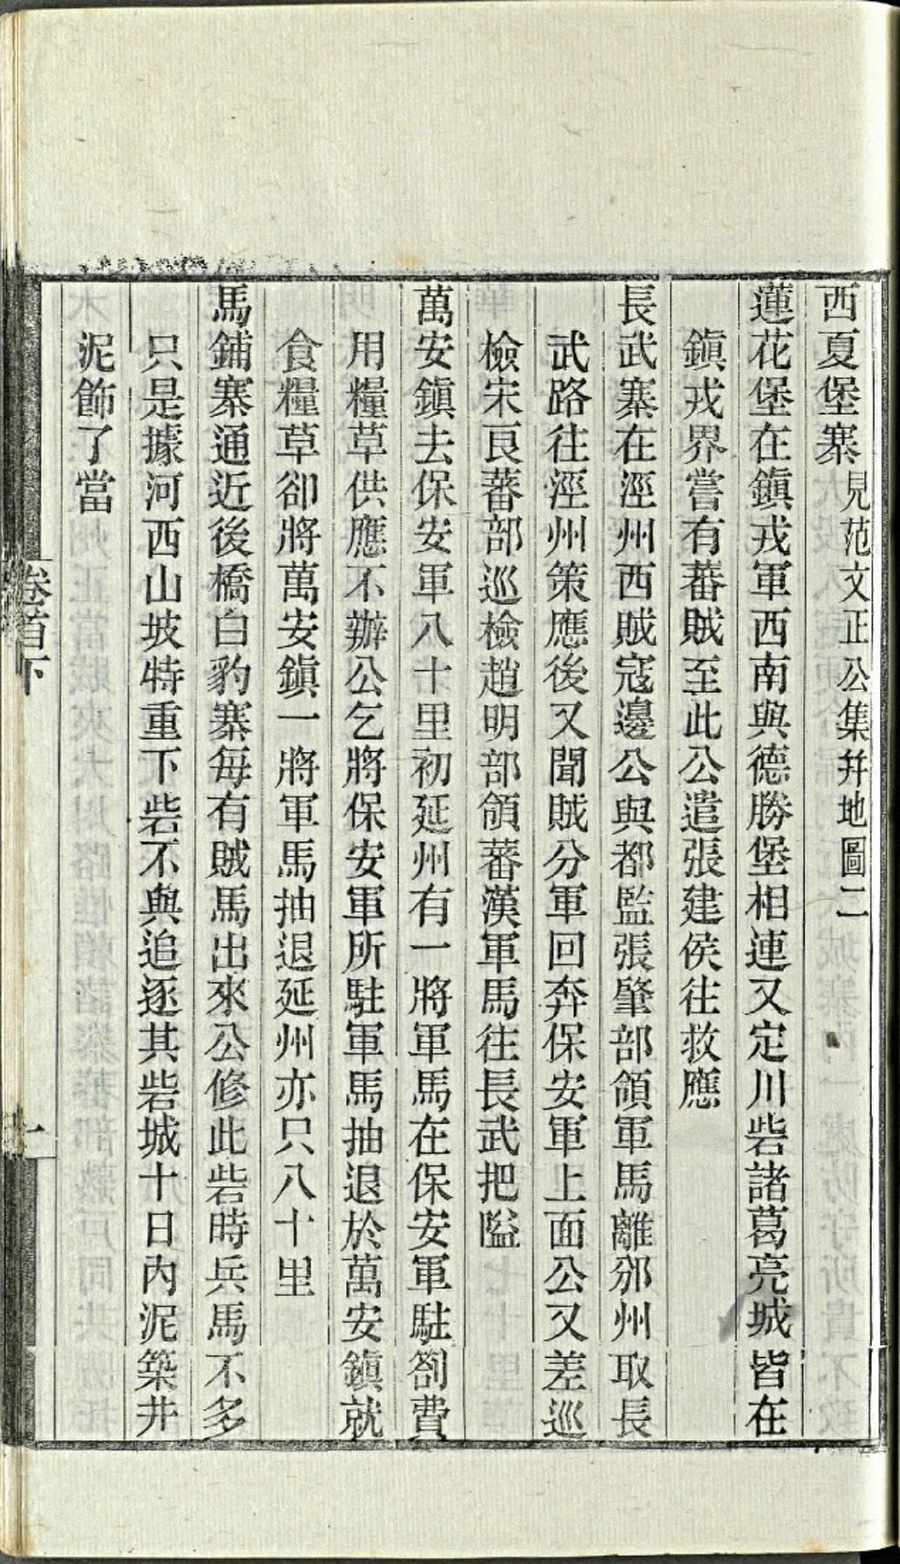 西夏堡寨見范文正公集幷地圖二
蓮花堡在鎮戎軍西南與德勝堡相連又定川砦諸葛亮城皆在
鎮戎界嘗有蕃賊至此公遣張建侯往救應
長武寨在涇州西賊寇邊公與都監張肇部領軍馬離邠州取長
武路往涇州策應後又聞賊分軍回奔保安軍上面公又差巡
檢宋良蕃部巡檢趙明部領蕃漢軍馬往長武把隘
萬安鎮去保安軍八十里初延州有一將軍馬在保安軍駐劄費
用糧草供應不辦公乞將保安軍所駐軍馬抽退於萬安鎮就
食糧草卻將萬安鎮一將軍馬抽退延州亦只八十里
馬鋪寨通近後橋白豹寨每有賊馬出來公修此砦時兵馬不多
只是據河西山坡特重下砦不與追逐其砦城十日內泥築井
泥飾了當
卷首下